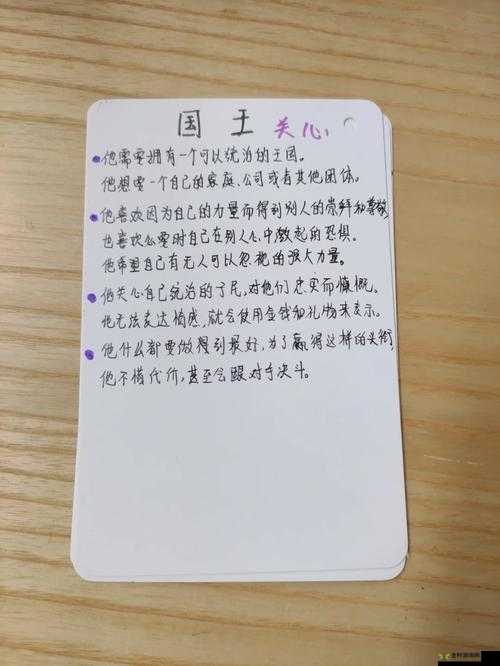 国王 关心
他需要拥有一个可以统治的王国。
他想要一个自己的家庭、公司或者其他团体。
他喜欢因为自己的力量而得到别人的崇拜和尊敬
也喜欢必要时自己在别人心中激起的恐惧。
他希望自己有无人可以忽视的强大力量。
他关心自己统治的子民,对他们忠实而慷慨。
他无法表达情感,就会使用金钱和礼物来表示。
他什么都要做得到最好,为了赢得这样的头衔,
他不惜代价,甚至会跟对手决斗。